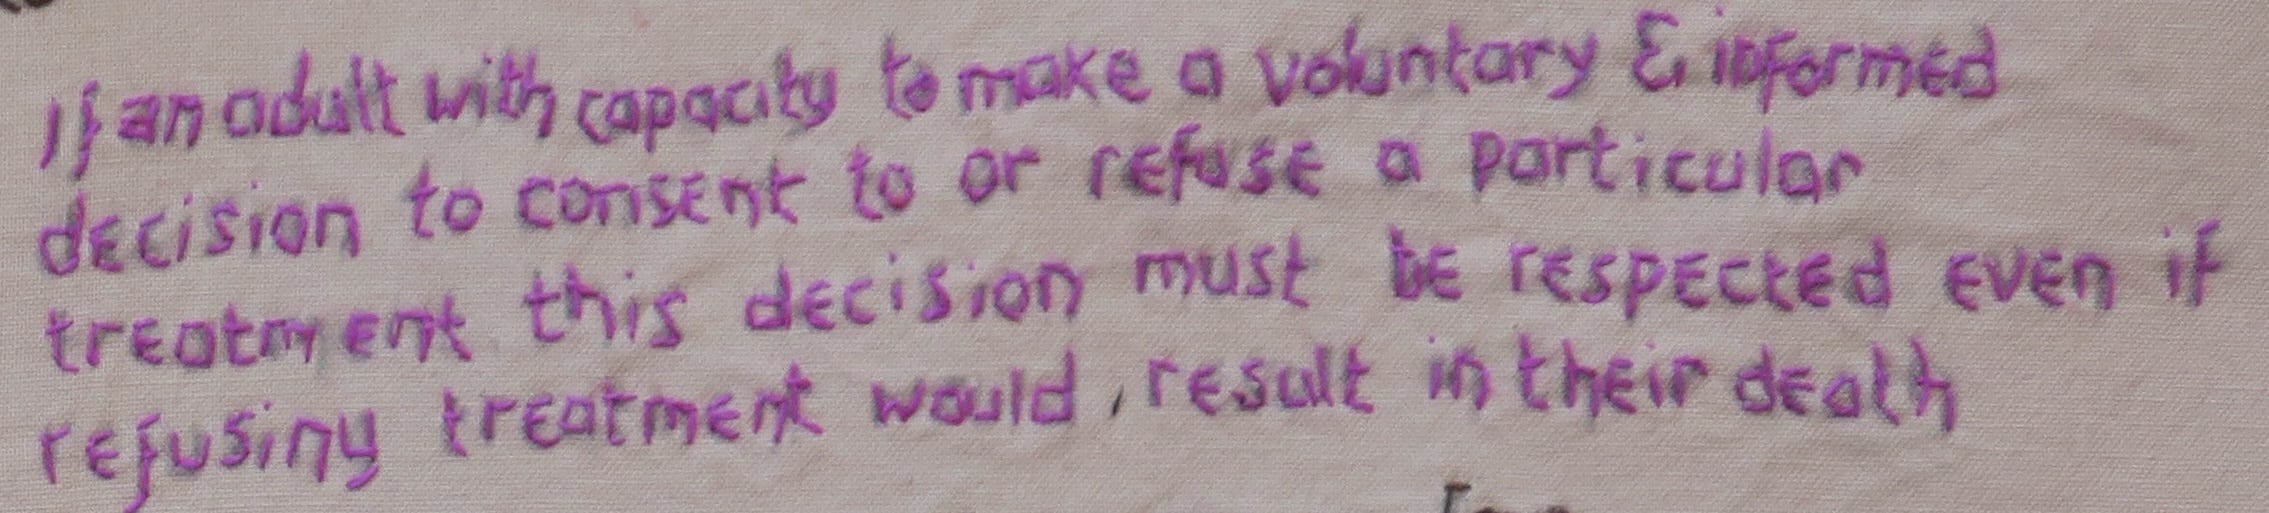 If an adult with capacity to make a voluntary & informed
decision to consent to or refuse a particular
treatment this decision must be respected even if
refusing treatment would, result in their death